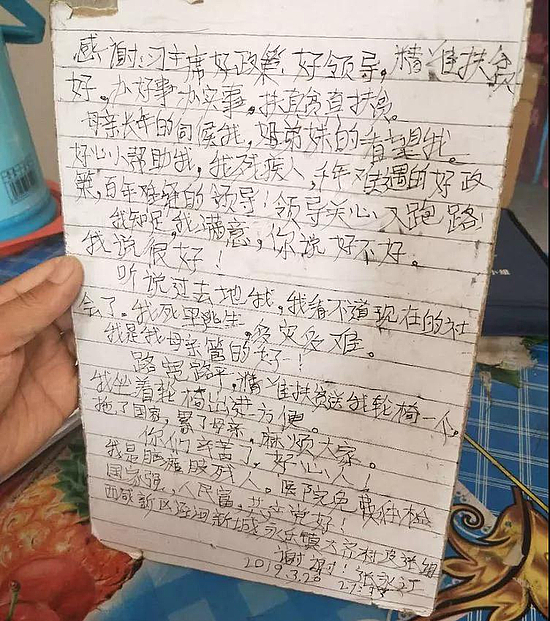 感谢习主席好政策,好领导,精准扶贫
好。办好事办实事,扶真贫真扶贫。
母亲长年的伺候我,兄弟妹的看望我。
好心人帮助我,我残疾人,千年难遇的好政
策,百年难碰的领导!领导关心入跑路!
我知足,我满意,你说好不好。
我说很好!
听说过去地我,我看不道现在的社
会了。我死里逃生,多灾多难。
我是我母亲管的好!
路宽路平,精准扶贫送我轮椅一个。
我坐着轮椅出进方便。
拖了国家,累了母亲,麻烦大家。
你们辛苦了,好心人!
我是脑瘫肢残人。医院免
国家强,人民富,共产党好!
西咸新区泾河新城永乐镇大 村皮张组
谢谢!张
2019.3.20